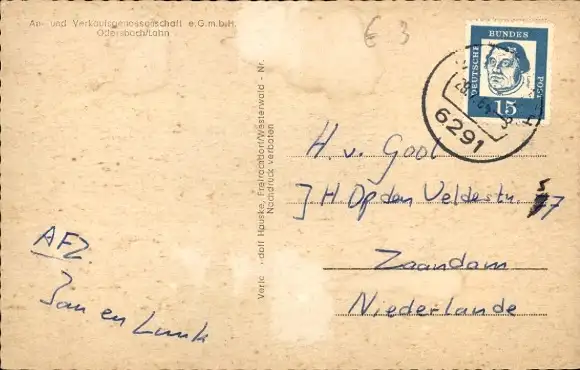 An- und Verkaufsgenossenschaft e.G.m.b.H.
Odersbach/Lahn
€ 3
DEUTSCHE BUNDES POST
15
6291
Verlag Rudolf Hauske, Freirachdorf/Westerwald - Nr.
Nachdruck verboten
H. v. Gool
JH Op den Veldestr
Zaandam
Niederlande
AFZ
Jan en